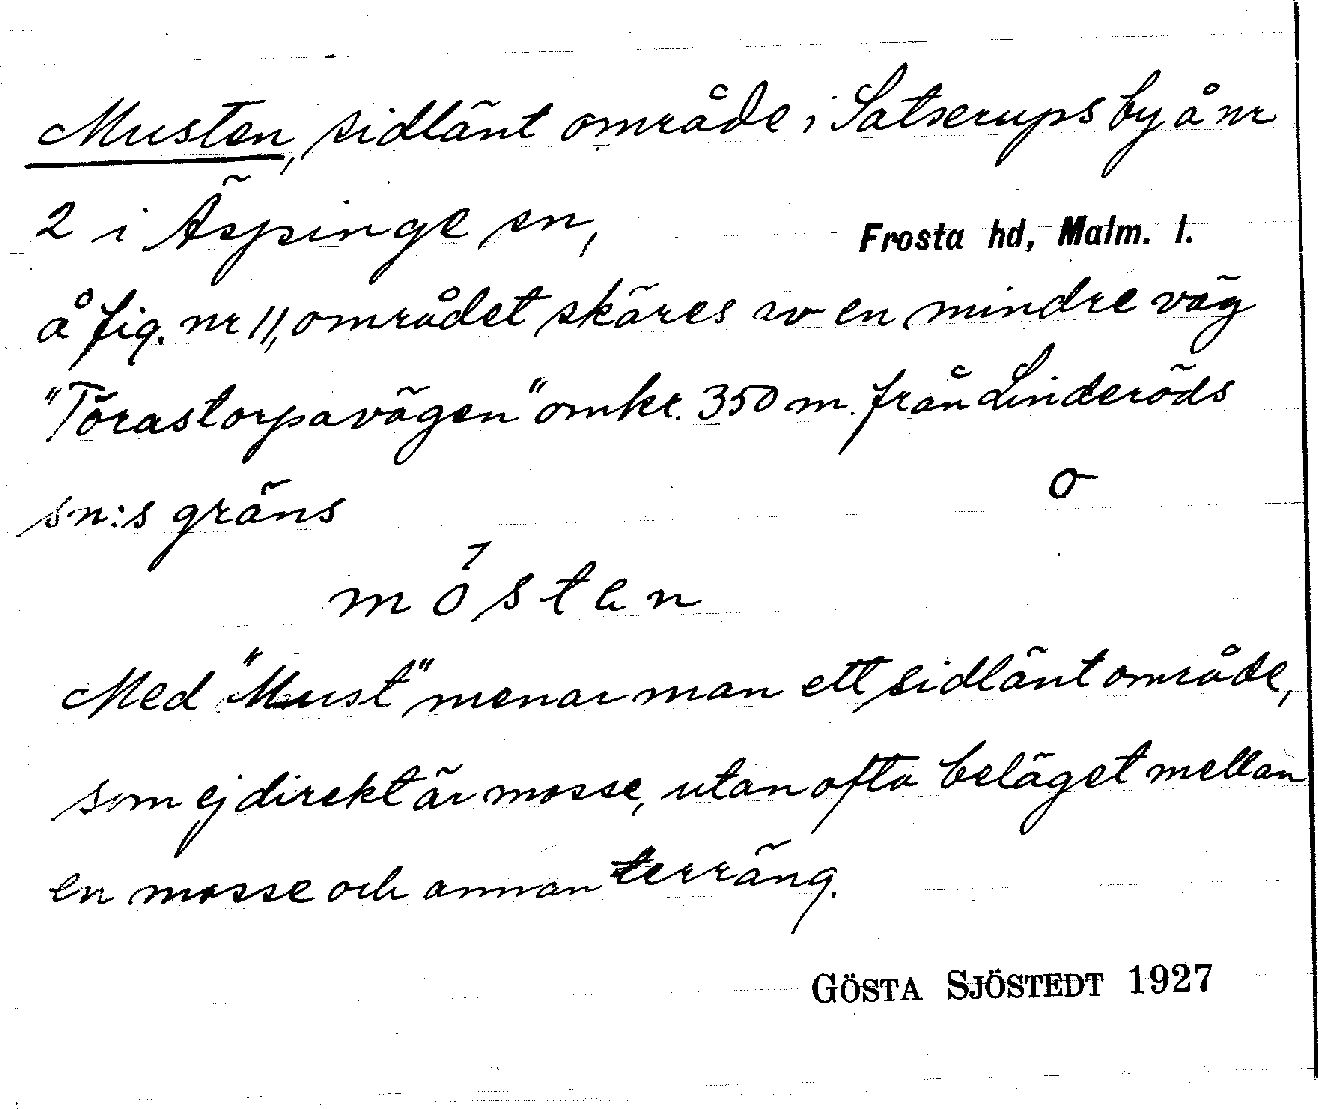 Musten, sidlänt område i Satserups by å nr
2 i Äspinge sn, Frosta hd, Malm. l.
å fig. nr 11, området skäres av en mindre väg
"Törastorpavägen" omkr. 350 m. från Linderöds
sn:s gräns
mösten
Med "Must" menar man ett sidlänt område,
som ej direkt är mosse, utan ofta beläget mellan
en mosse och annan terräng.
GÖSTA SJÖSTEDT 1927